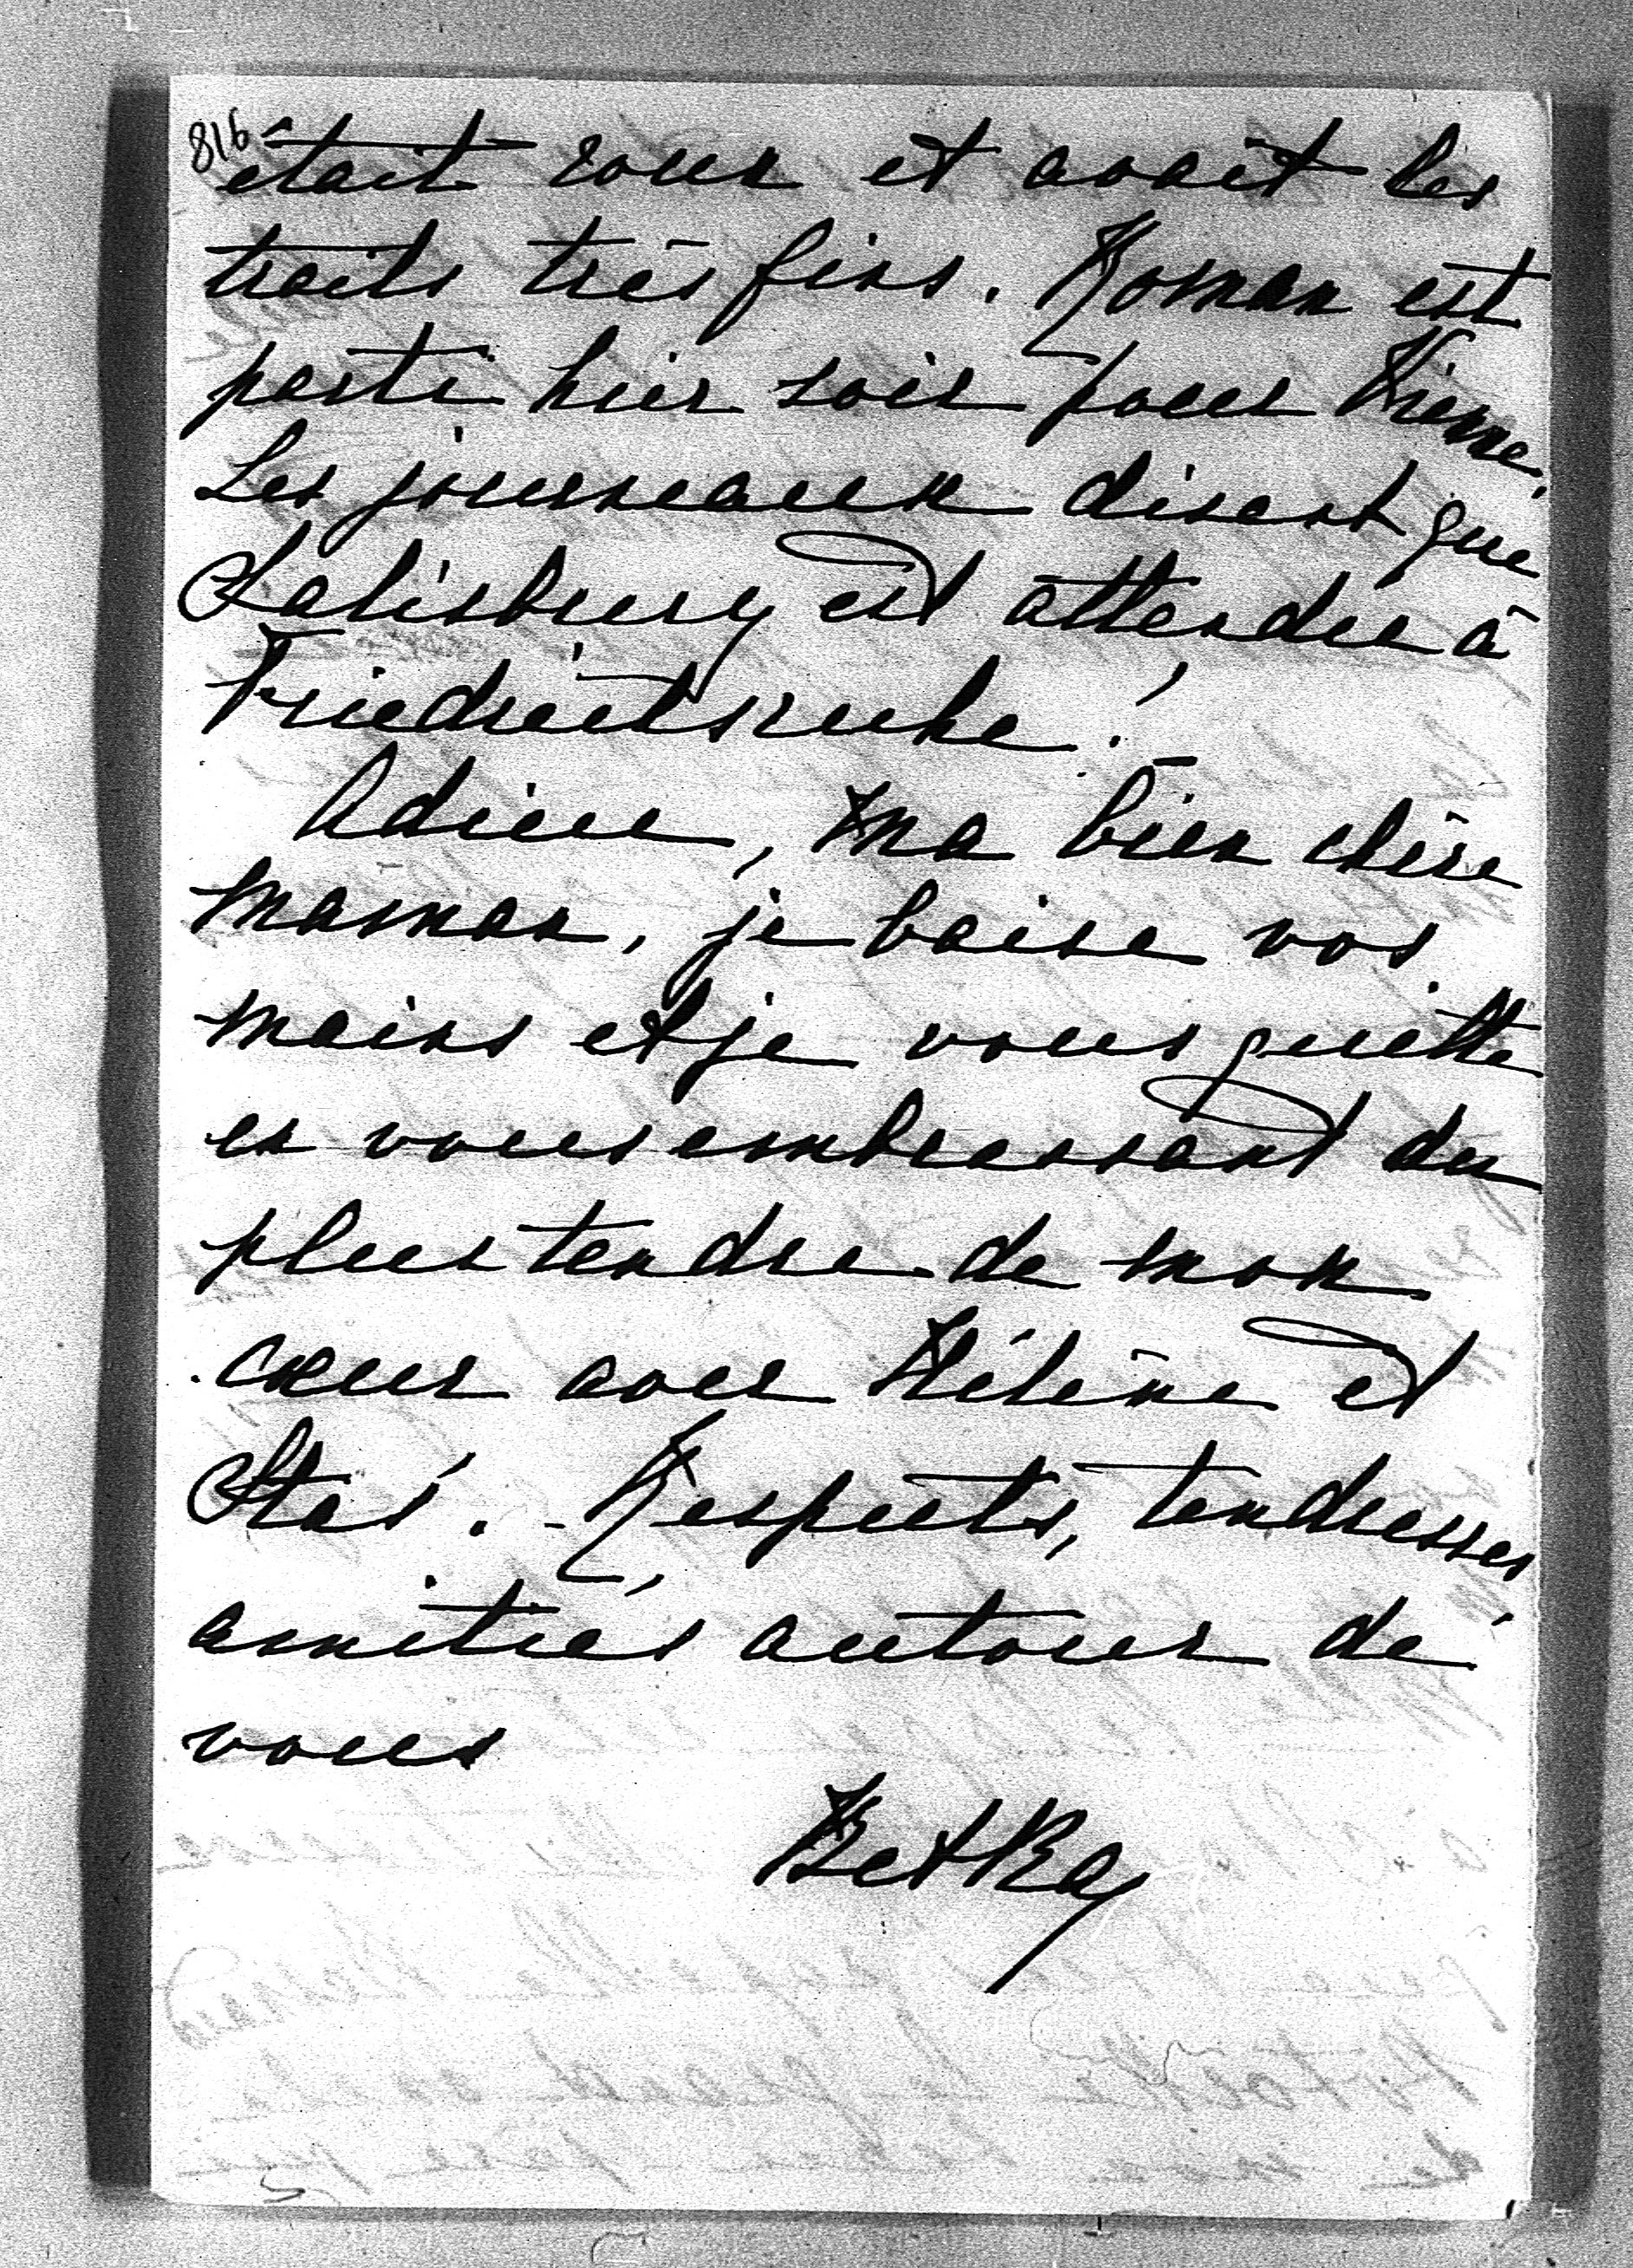 816
était roux et avait les
traits très fins. Roman est
parti hier soir pour Vienne.
Les journeaux disent que
Salisbury est attendu à
Friedrichsruhe!
Adieu, ma bien chère
maman, je baise vos
mains et je vous quitte
en vous embrassant du
plus tendre de mon
cœur avec Hélène et
Staś. - Respects, tendresses
amitiés autour de
vous
Betka